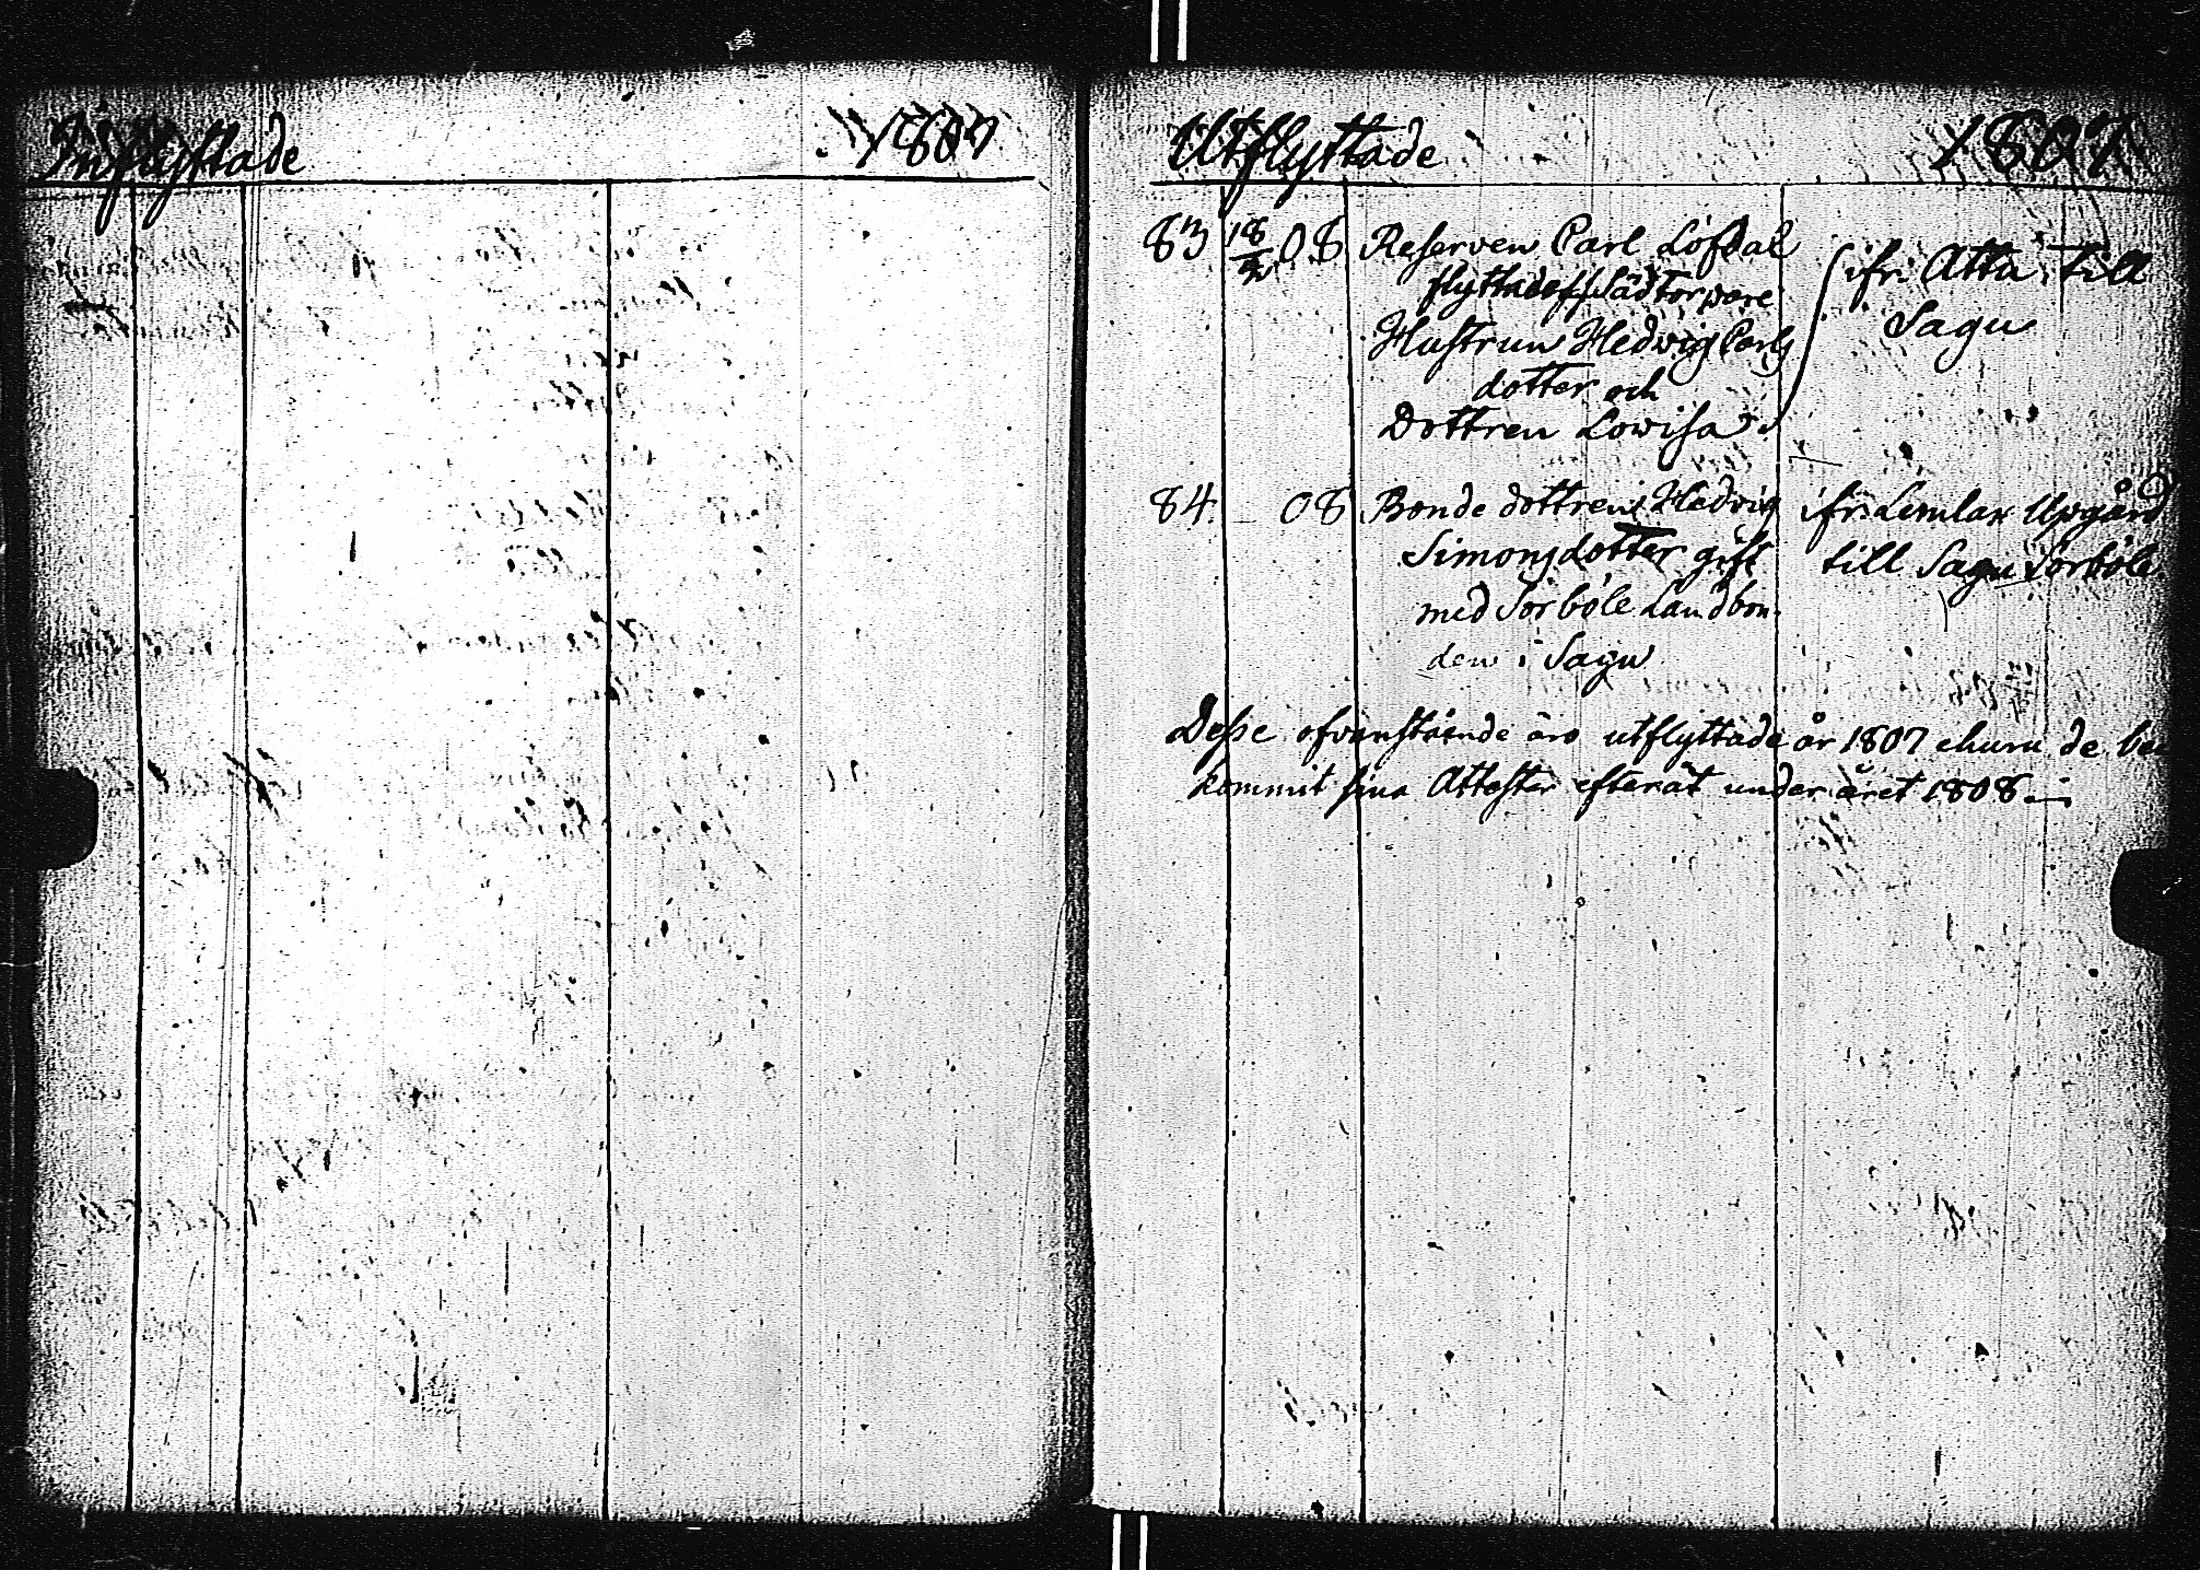 Inflyttade 1807
Utflyttade 1807
83 18/2 08 Reserven Carl Löfdal
flyttade ss Sädtorpare
Hustrun Hedvig Carls
dotter och
Dottren Lowisa
ifr: Atta till
Sagu
84. 08 Bonde dottren Hedvig
Simonsdotter gift
med Sörböle Landbon-
den i Sagu
ifr: Lemlax Upgård
till Sagu Sörböle.
Desse ofvanstående äro utflyttade år 1807 ehuru de be
kommit sina Attester efteråt under året 1808